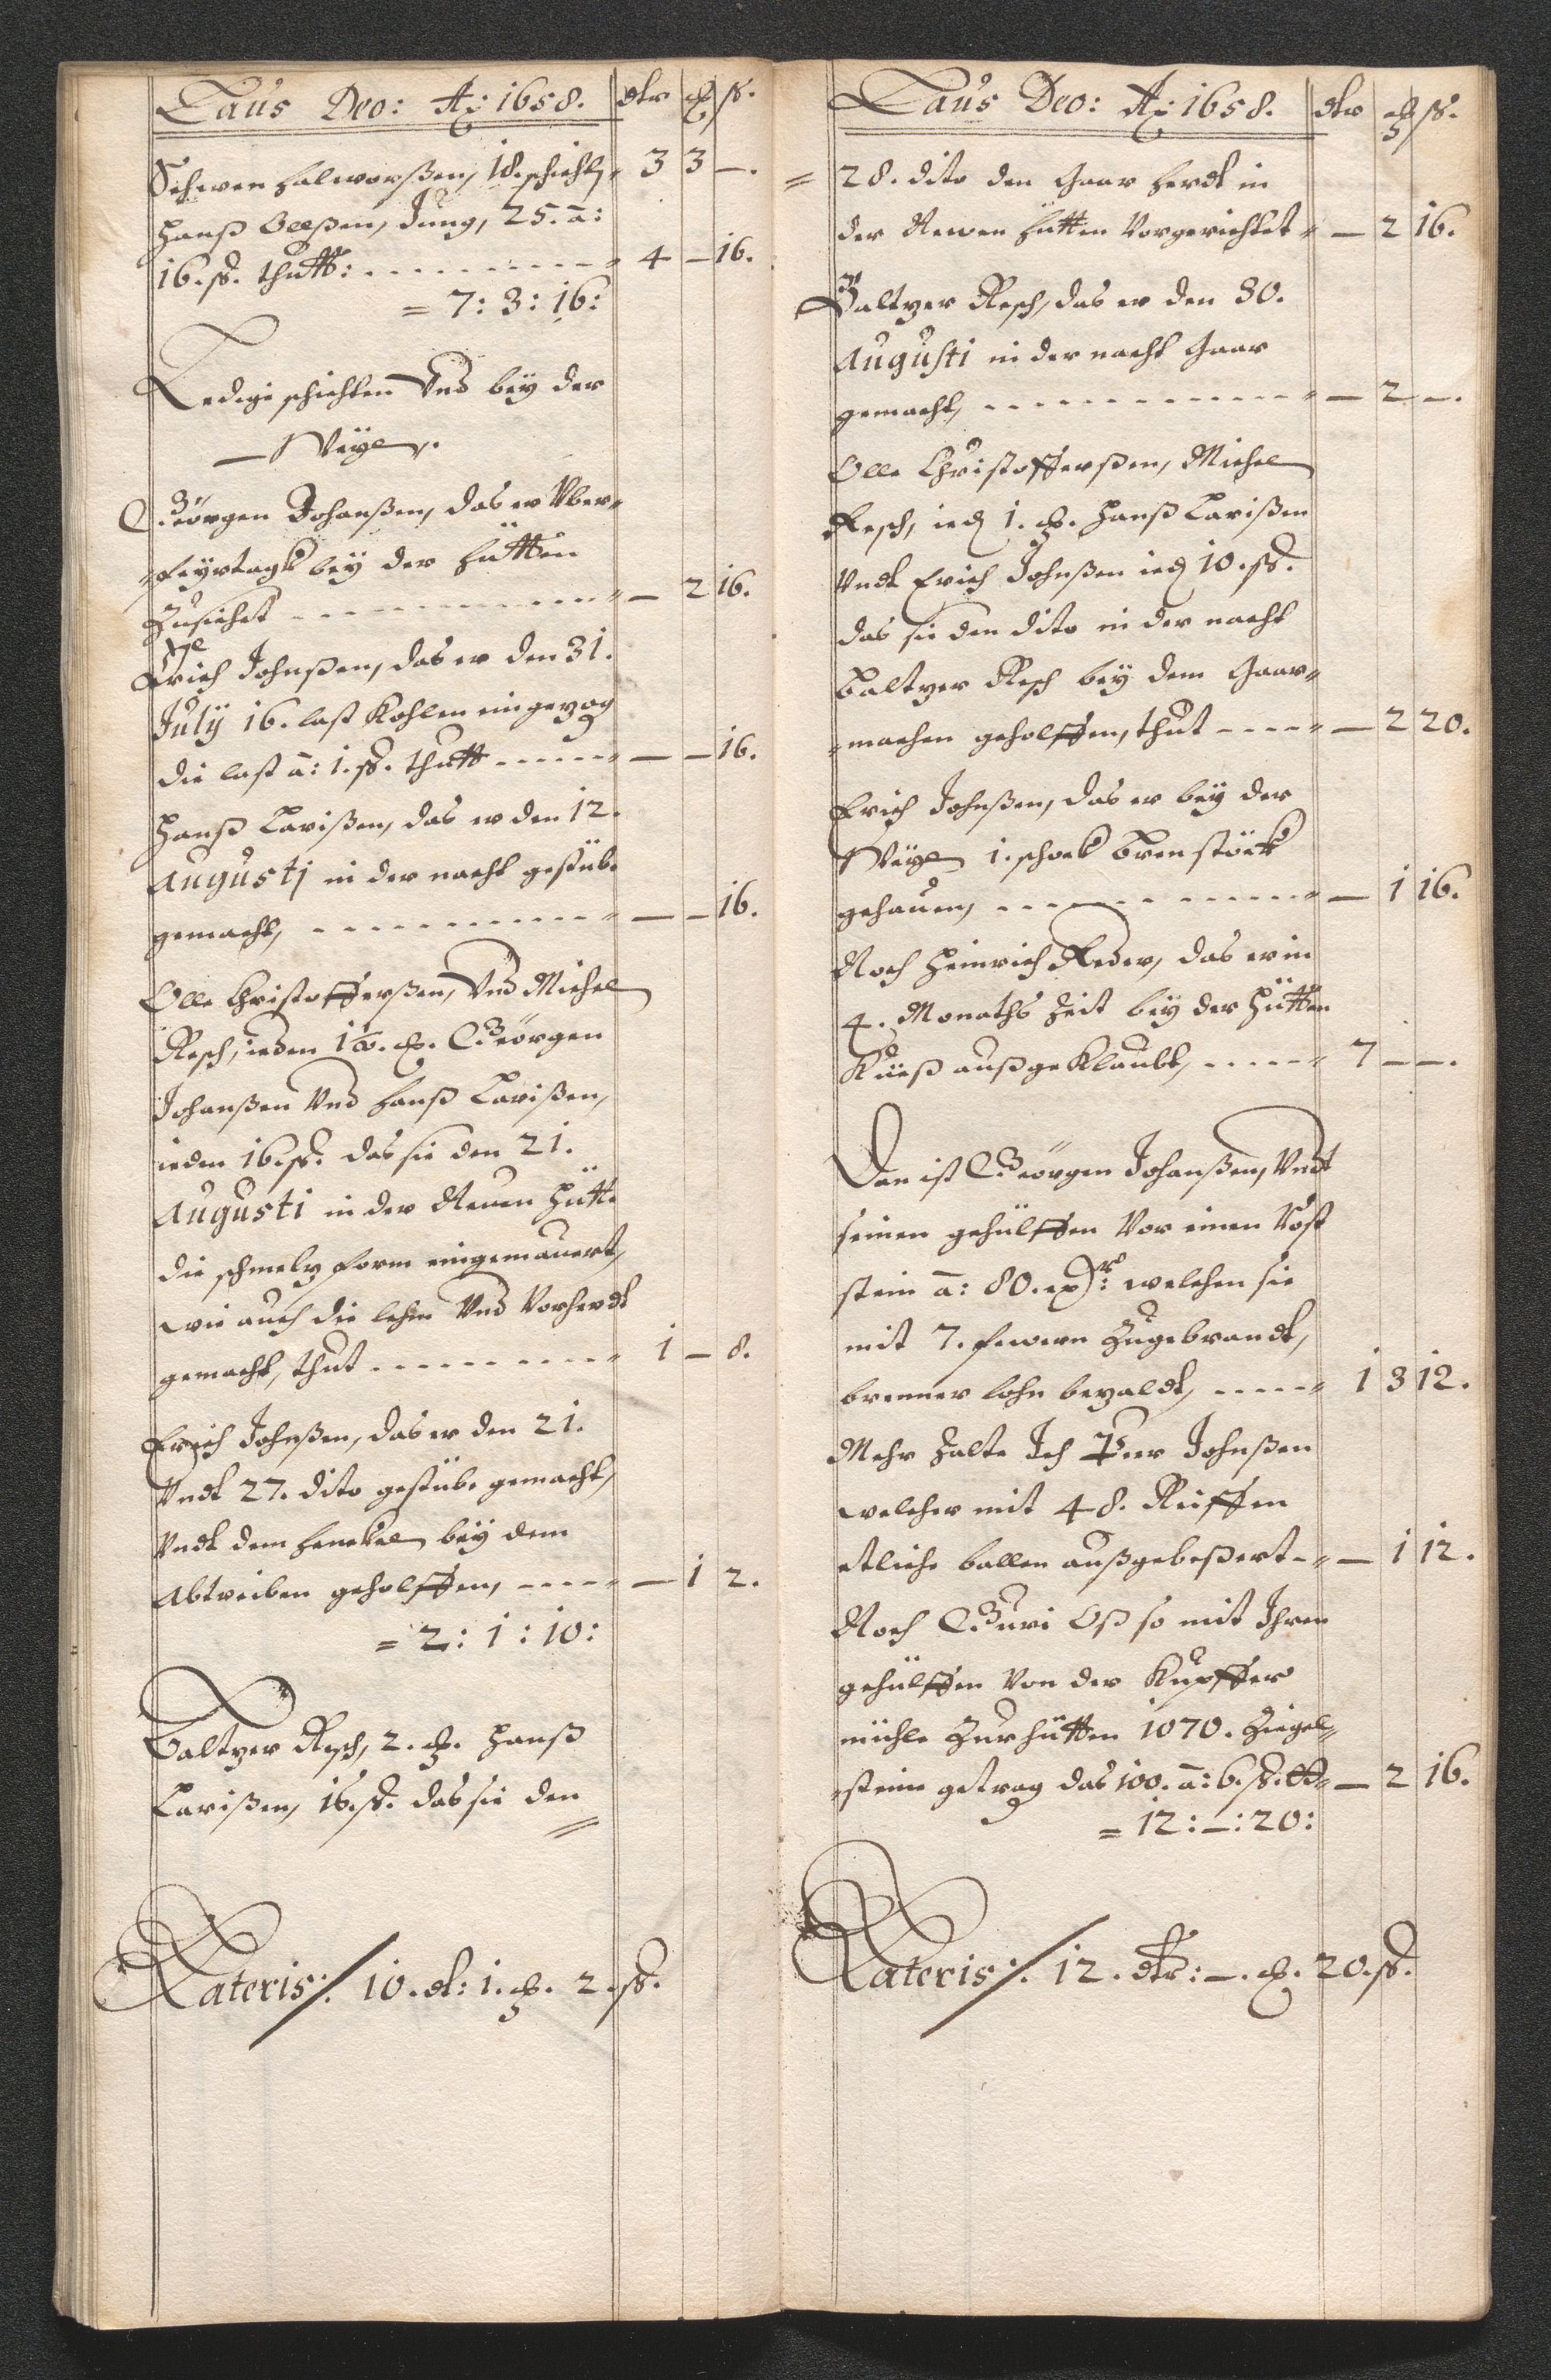 Laus Deo: Ao: 1658. dlr ℔ ß.
Schwen Halworßen, 18. schicht, 3 3 —.
Hanß Oelßen, Jung, 25. a:
16. ß. thutt: 4 — 16.
= 7: 3: 16:
Ledige schichten Und bey der
Weyle.
Geörgen Johanßen, das er Uber
feyrtagk bey der Hütten
Zusichet — 2 16.
Erich Johnßen, das er den 31.
July 16. last Kohlen eingezog
die last a: 1. ß. thutt — — 16.
Hanß Larißen, das er den 12.
Augusti in der nacht gestübe
gemacht, — — 16.
Olle Christofferßen, Und Michel
Resch, ieden 1½. ℔. Geörgen
Johanßen Und Hanß Larißen,
ieden 16. ß. das sie den 21.
Augusti in der Neuen Hütte
die schmeltz form eingemauert,
wie auch die lehm Und Vorherdt
gemacht, thut 1 — 8.
Erich Johnßen, das er den 21.
Undt 27. dito gestübe gemacht,
Undt dem Henckel bey dem
Abtreiben geholffen, — 1 2.
= 2: 1: 10:
Baltzer Resch, 2. ℔. Hanß
Larißen, 16. ß. das sie den
Lateris:/. 10. dl: 1. ℔. 2. ß.
Laus Deo: Ao: 1658. dlr ℔ ß.
= 28. dito den Gaar Herdt in
der Newen Hütten Vorgerichtet — 2 16.
Baltzer Resch, das er den 30.
Augusti in der nacht Gaar
gemacht, — 2 —.
Olle Christofferßen, Michel
Resch, ied 1. ℔. Hanß Larißen
Undt Erich Johnßen ied 10. ß.
das sie den dito in der nacht
Baltzer Resch bey dem Gaar
machen geholffen, thut — 2 20.
Erich Johnßen, das er bey der
Weyle 1. schock Brenstöck
gehauen, — 1 16.
Noch Heinrich Reder, das er in
4. Monaths Zeit bey der Hütten
Kieß außgeKlaubt, 7 — —.
Den ist Geörgen Johanßen, Undt
seinen gehülffen Vor einen Rost
stein a: 80. welchen sie
mit 7. fewern Zugebrandt,
brenner lohn bezaldt, 1 3 12.
Mehr Zalte Ich Peer Johnßen
welcher mit 48. Reiffen
etliche ballen außgebeßert — 1 12.
Noch Guri Oß so mit Ihren
gehülffen Von der Kupffer
mühle Zur Hütten 1070. Ziegel
steine getrag das 100. a: 6. ß. — 2 16.
= 12: —: 20:
Lateris:/. 12. dlr: —. ℔. 20. ß.